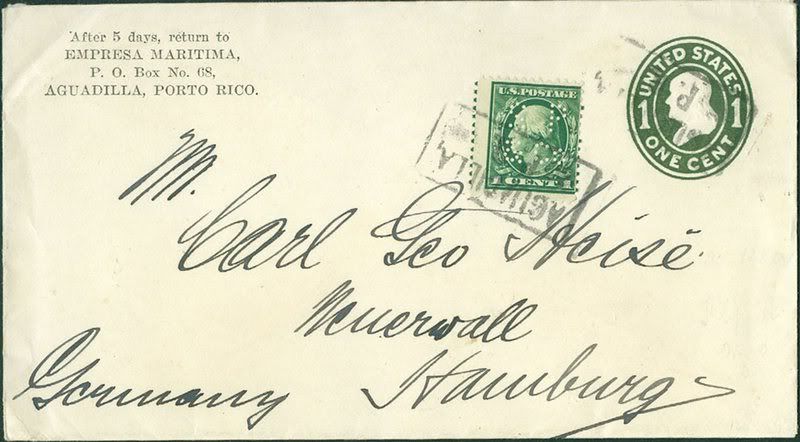 After 5 days, return to
EMPRESA MARITIMA,
P. O. Box No. 68,
AGUADILLA, PORTO RICO.
U.S. POSTAGE
1 CENT 1
UNITED STATES
1 1
ONE CENT
AGUADILLA,
AGUADILLA
P.R.
Mr.
Carl Geo Heise
Neuerwall
Hamburg
Germany